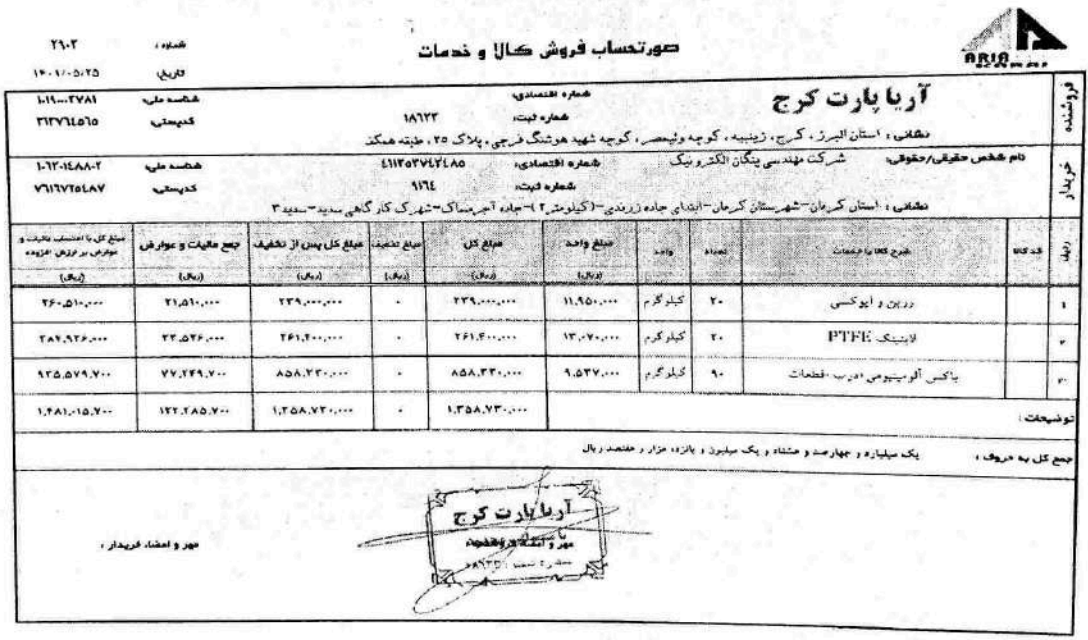 صورتحساب فروش کالا و خدمات
شماره : ۲۹۰۲
تاریخ: ۱۴۰۱/۰۵/۲۵
ARIA
فروشنده
آریا پارت کرج
شماره اقتصادی:
شناسه ملی:
شماره ثبت: ۱۸۶۲۳
کدپستی:
نشانی : استان البرز ، کرج، زیبیه ، کوچه ولیعصر ، کوچه شهید هوشنگ فرجی، پلاک ۲۵ ، طبقه همکف
خریدار
نام شخص حقیقی/حقوقی: شرکت مهندسی پنگان الکترونیک
شماره اقتصادی:
شناسه ملی:
شماره ثبت: ۹۱۶۴
کدپستی: ۷۶۱۶۷۲۵۴۸۷
نشانی : استان کرمان-شهرستان کرمان-ابتدای جاده زرندی-(کیلومتر ۲)-جاده آجرنساک-شهرک کارگاهی سدید-سدید ۳
ردیف کد کالا شرح کالا یا خدمات تعداد واحد مبلغ واحد (ریال) مبلغ کل (ریال) مبلغ تخفیف (ریال) مبلغ کل پس از تخفیف (ریال) جمع مالیات و عوارض (ریال) مبلغ کل با احتساب مالیات و عوارض بر ارزش افزوده (ریال)
۱ رزین و اپوکسی ۲۰ کیلوگرم ۱۱,۹۵۰,۰۰۰ ۲۳۹,۰۰۰,۰۰۰ ۰ ۲۳۹,۰۰۰,۰۰۰ ۲۱,۵۱۰,۰۰۰ ۲۶۰,۵۱۰,۰۰۰
۲ لاینینگ PTFE ۲۰ کیلوگرم ۱۳,۰۷۰,۰۰۰ ۲۶۱,۴۰۰,۰۰۰ ۰ ۲۶۱,۴۰۰,۰۰۰ ۲۳,۵۲۶,۰۰۰ ۲۸۴,۹۲۶,۰۰۰
۳ باکس آلومینیومی قطعات ۹۰ کیلوگرم ۹,۵۳۷,۰۰۰ ۸۵۸,۳۳۰,۰۰۰ ۰ ۸۵۸,۳۳۰,۰۰۰ ۷۷,۲۴۹,۷۰۰ ۹۳۵,۵۷۹,۷۰۰
۱,۳۵۸,۷۳۰,۰۰۰ ۰ ۱,۳۵۸,۷۳۰,۰۰۰ ۱۲۲,۲۸۵,۷۰۰ ۱,۴۸۱,۰۱۵,۷۰۰
توضیحات :
جمع کل به حروف : یک میلیارد و چهارصد و هشتاد و یک میلیون و پانزده هزار و هفتصد ریال
آریا پارت کرج
مهر و امضاء
مهر و امضاء خریدار :